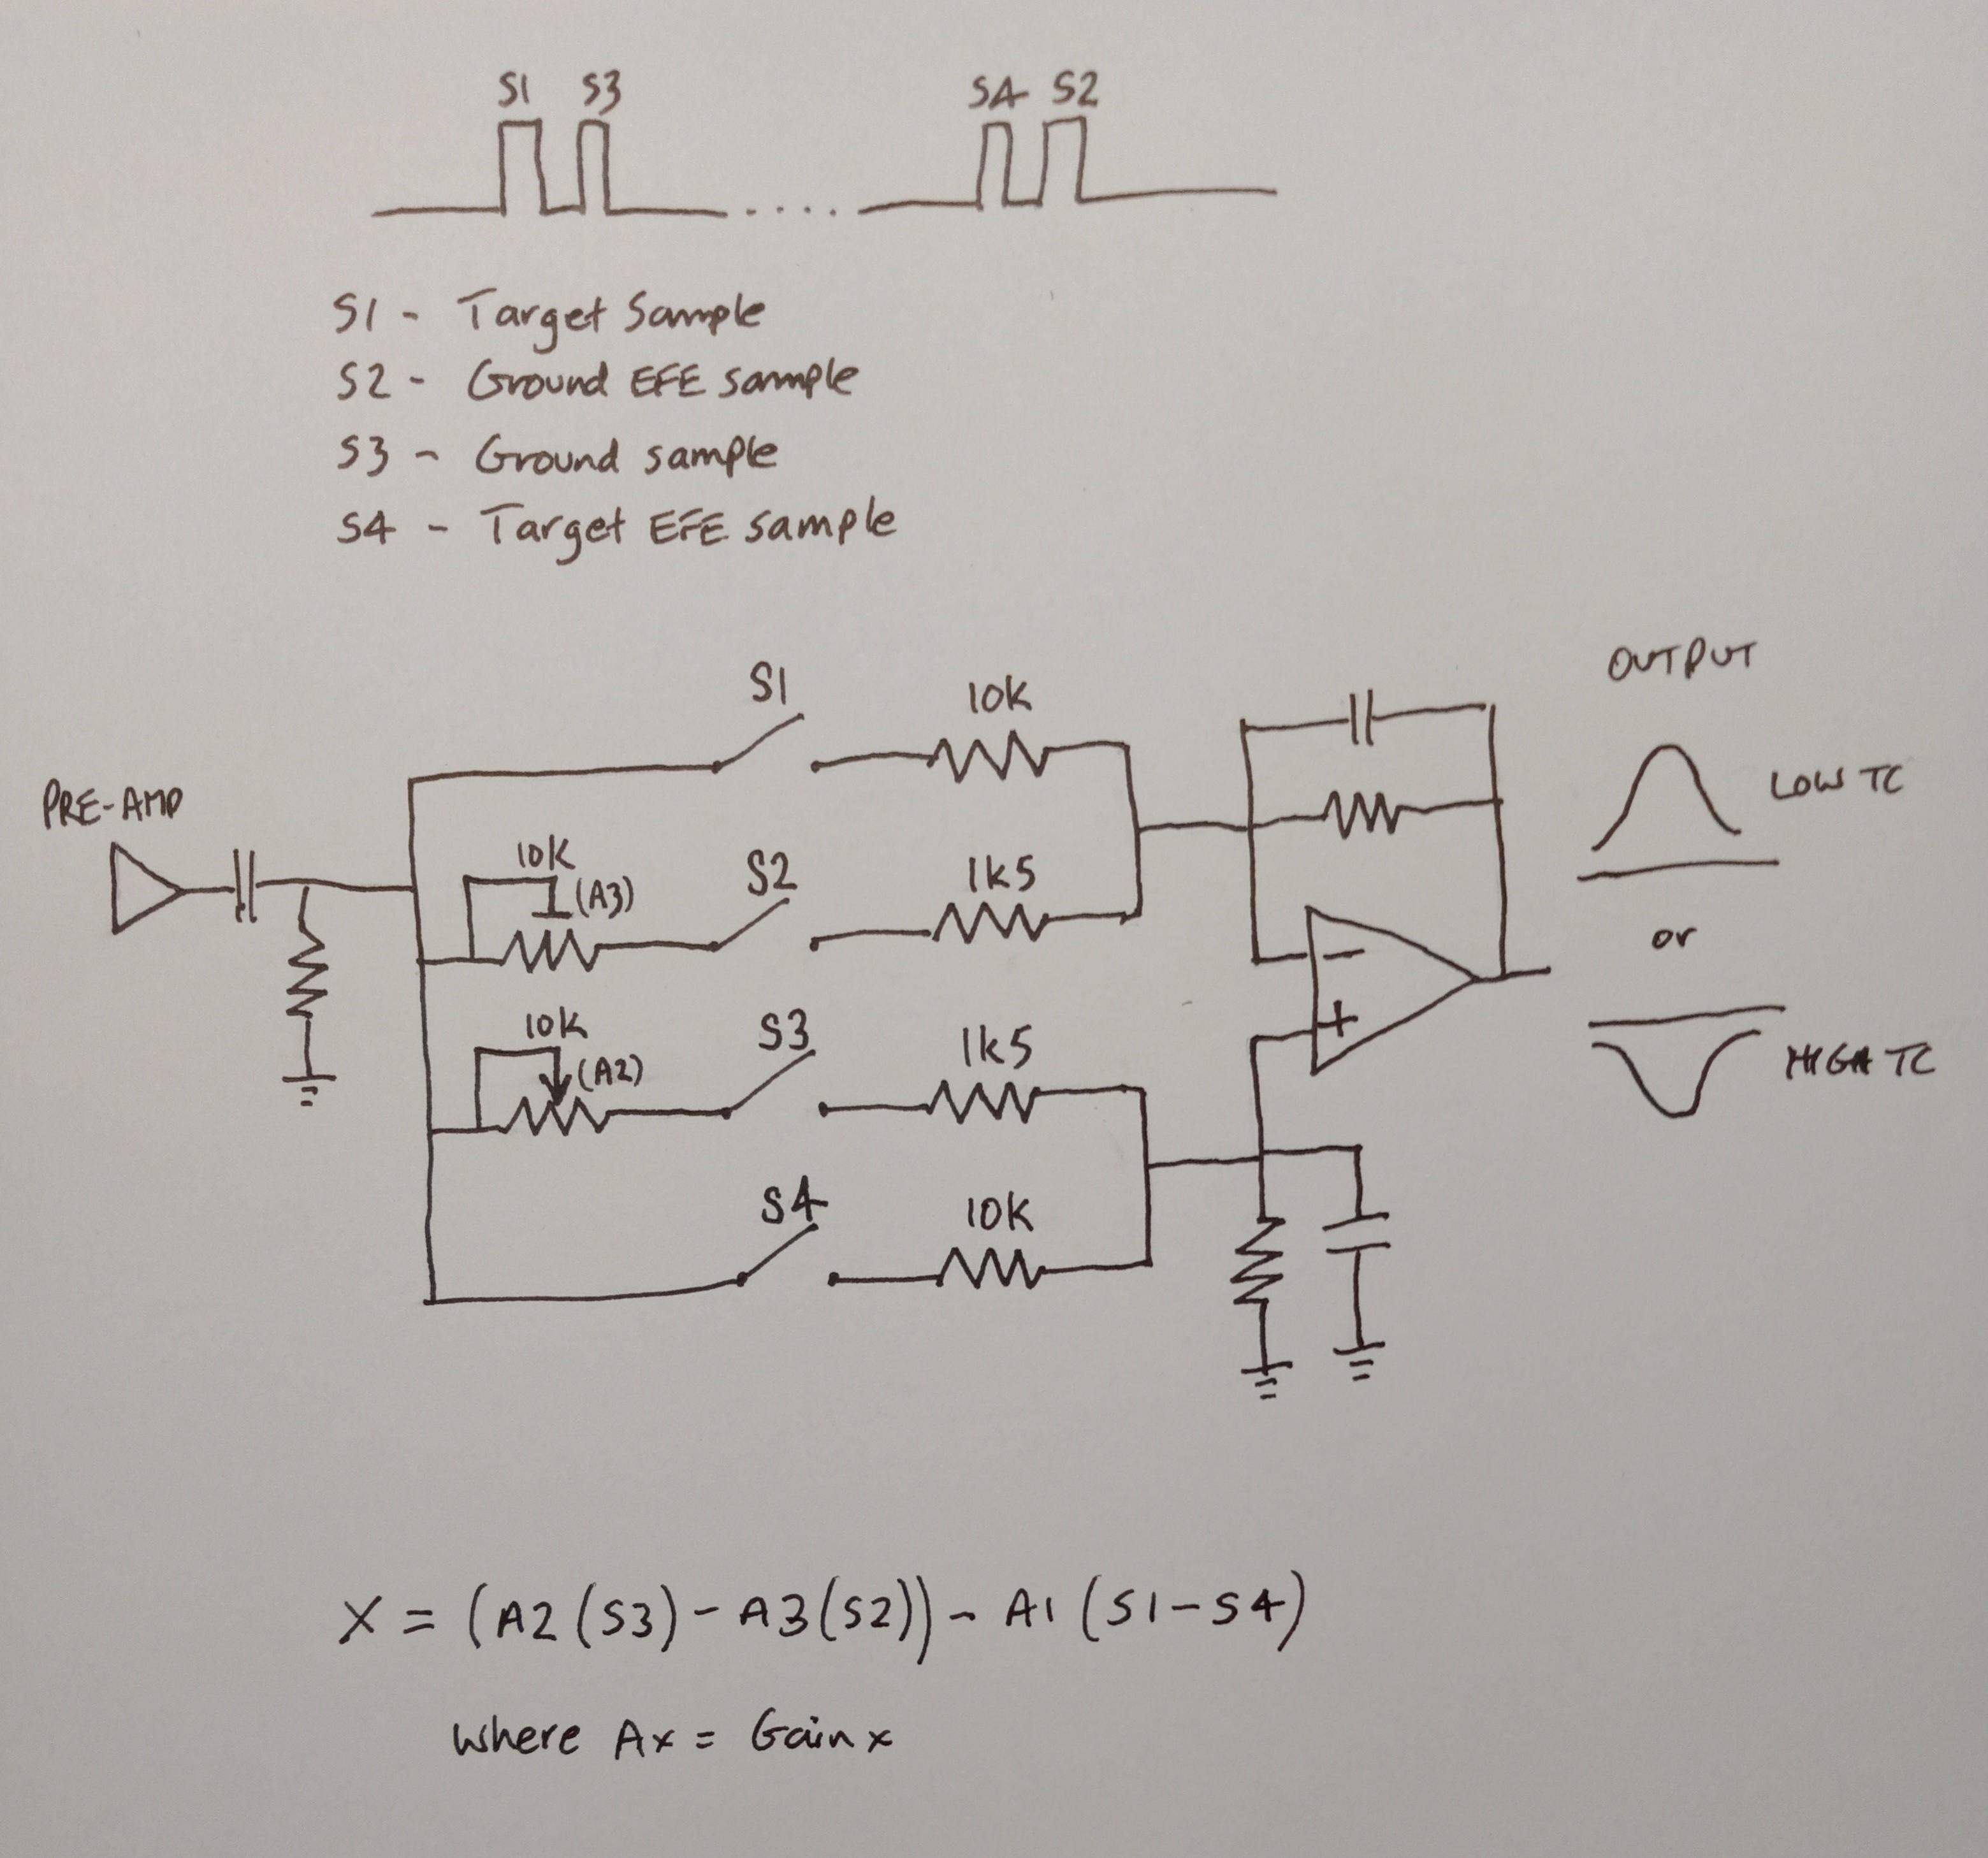 S1 S3 S4 S2
S1 - Target Sample
S2 - Ground EFE sample
S3 - Ground sample
S4 - Target EFE sample
OUTPUT
S1 10K
PRE-AMP
LOW TC
10K (A3) S2 1k5
or
10K (A2) S3 1k5
HIGH TC
S4 10K
- 
+
X = (A2(S3) - A3(S2)) - A1(S1-S4)
where Ax = Gain x